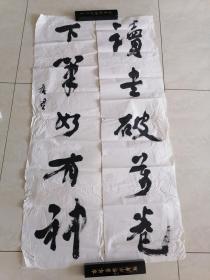 讀书破萬卷
下筆如有神